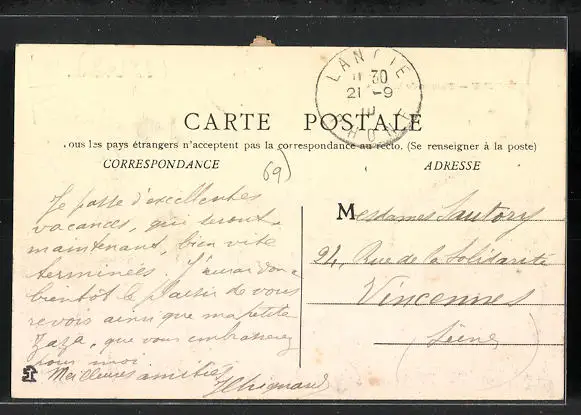 LANCIÉ
11 30
21 -9
10
RHONE
CARTE POSTALE
ous les pays étrangers n'acceptent pas la correspondance au recto. (Se renseigner à la poste)
CORRESPONDANCE
ADRESSE
69)
Je passe d'excellentes
vacances, qui seront
maintenant, bien vite
terminées. J'aurai donc
bientôt le plaisir de vous
revoir ainsi que ma petite
Zaza, que vous embrasserez
pour moi.
Meilleures amitiés
Mesdames Sautory
24, Rue de la Solidarité
Vincennes
(Seine)